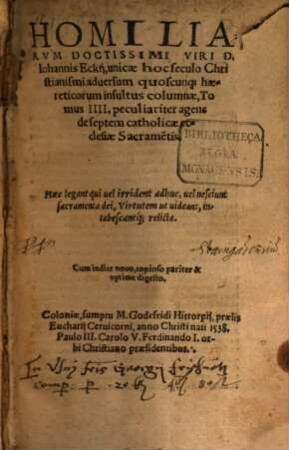 HOMILIA
RVM DOCTISSIMI VIRI D.
Iohannis Eckij, unicæ hoc seculo Chri
stianismi aduersum quoscunq; hæ-
reticorum insultus columnæ, To
mus IIII. peculiariter agens
de septem catholicæ ec-
clesiæ Sacramētis.
BIBLIOTHECA
REGIA
MONACENSIS.
Hæc legant qui uel irrident adhuc, uel nesciunt
sacramenta dei, Virtutem ut uideant, in-
tabescantq; relicta.
Cum indice nouo, copioso pariter &
optime digesto.
Coloniæ, sumptu M. Godefridi Hittorpij, prælis
Eucharij Ceruicorni, anno Christi nati 1538.
Paulo III. Carolo V. Ferdinando I. or-
bi Christiano præsidentibus.